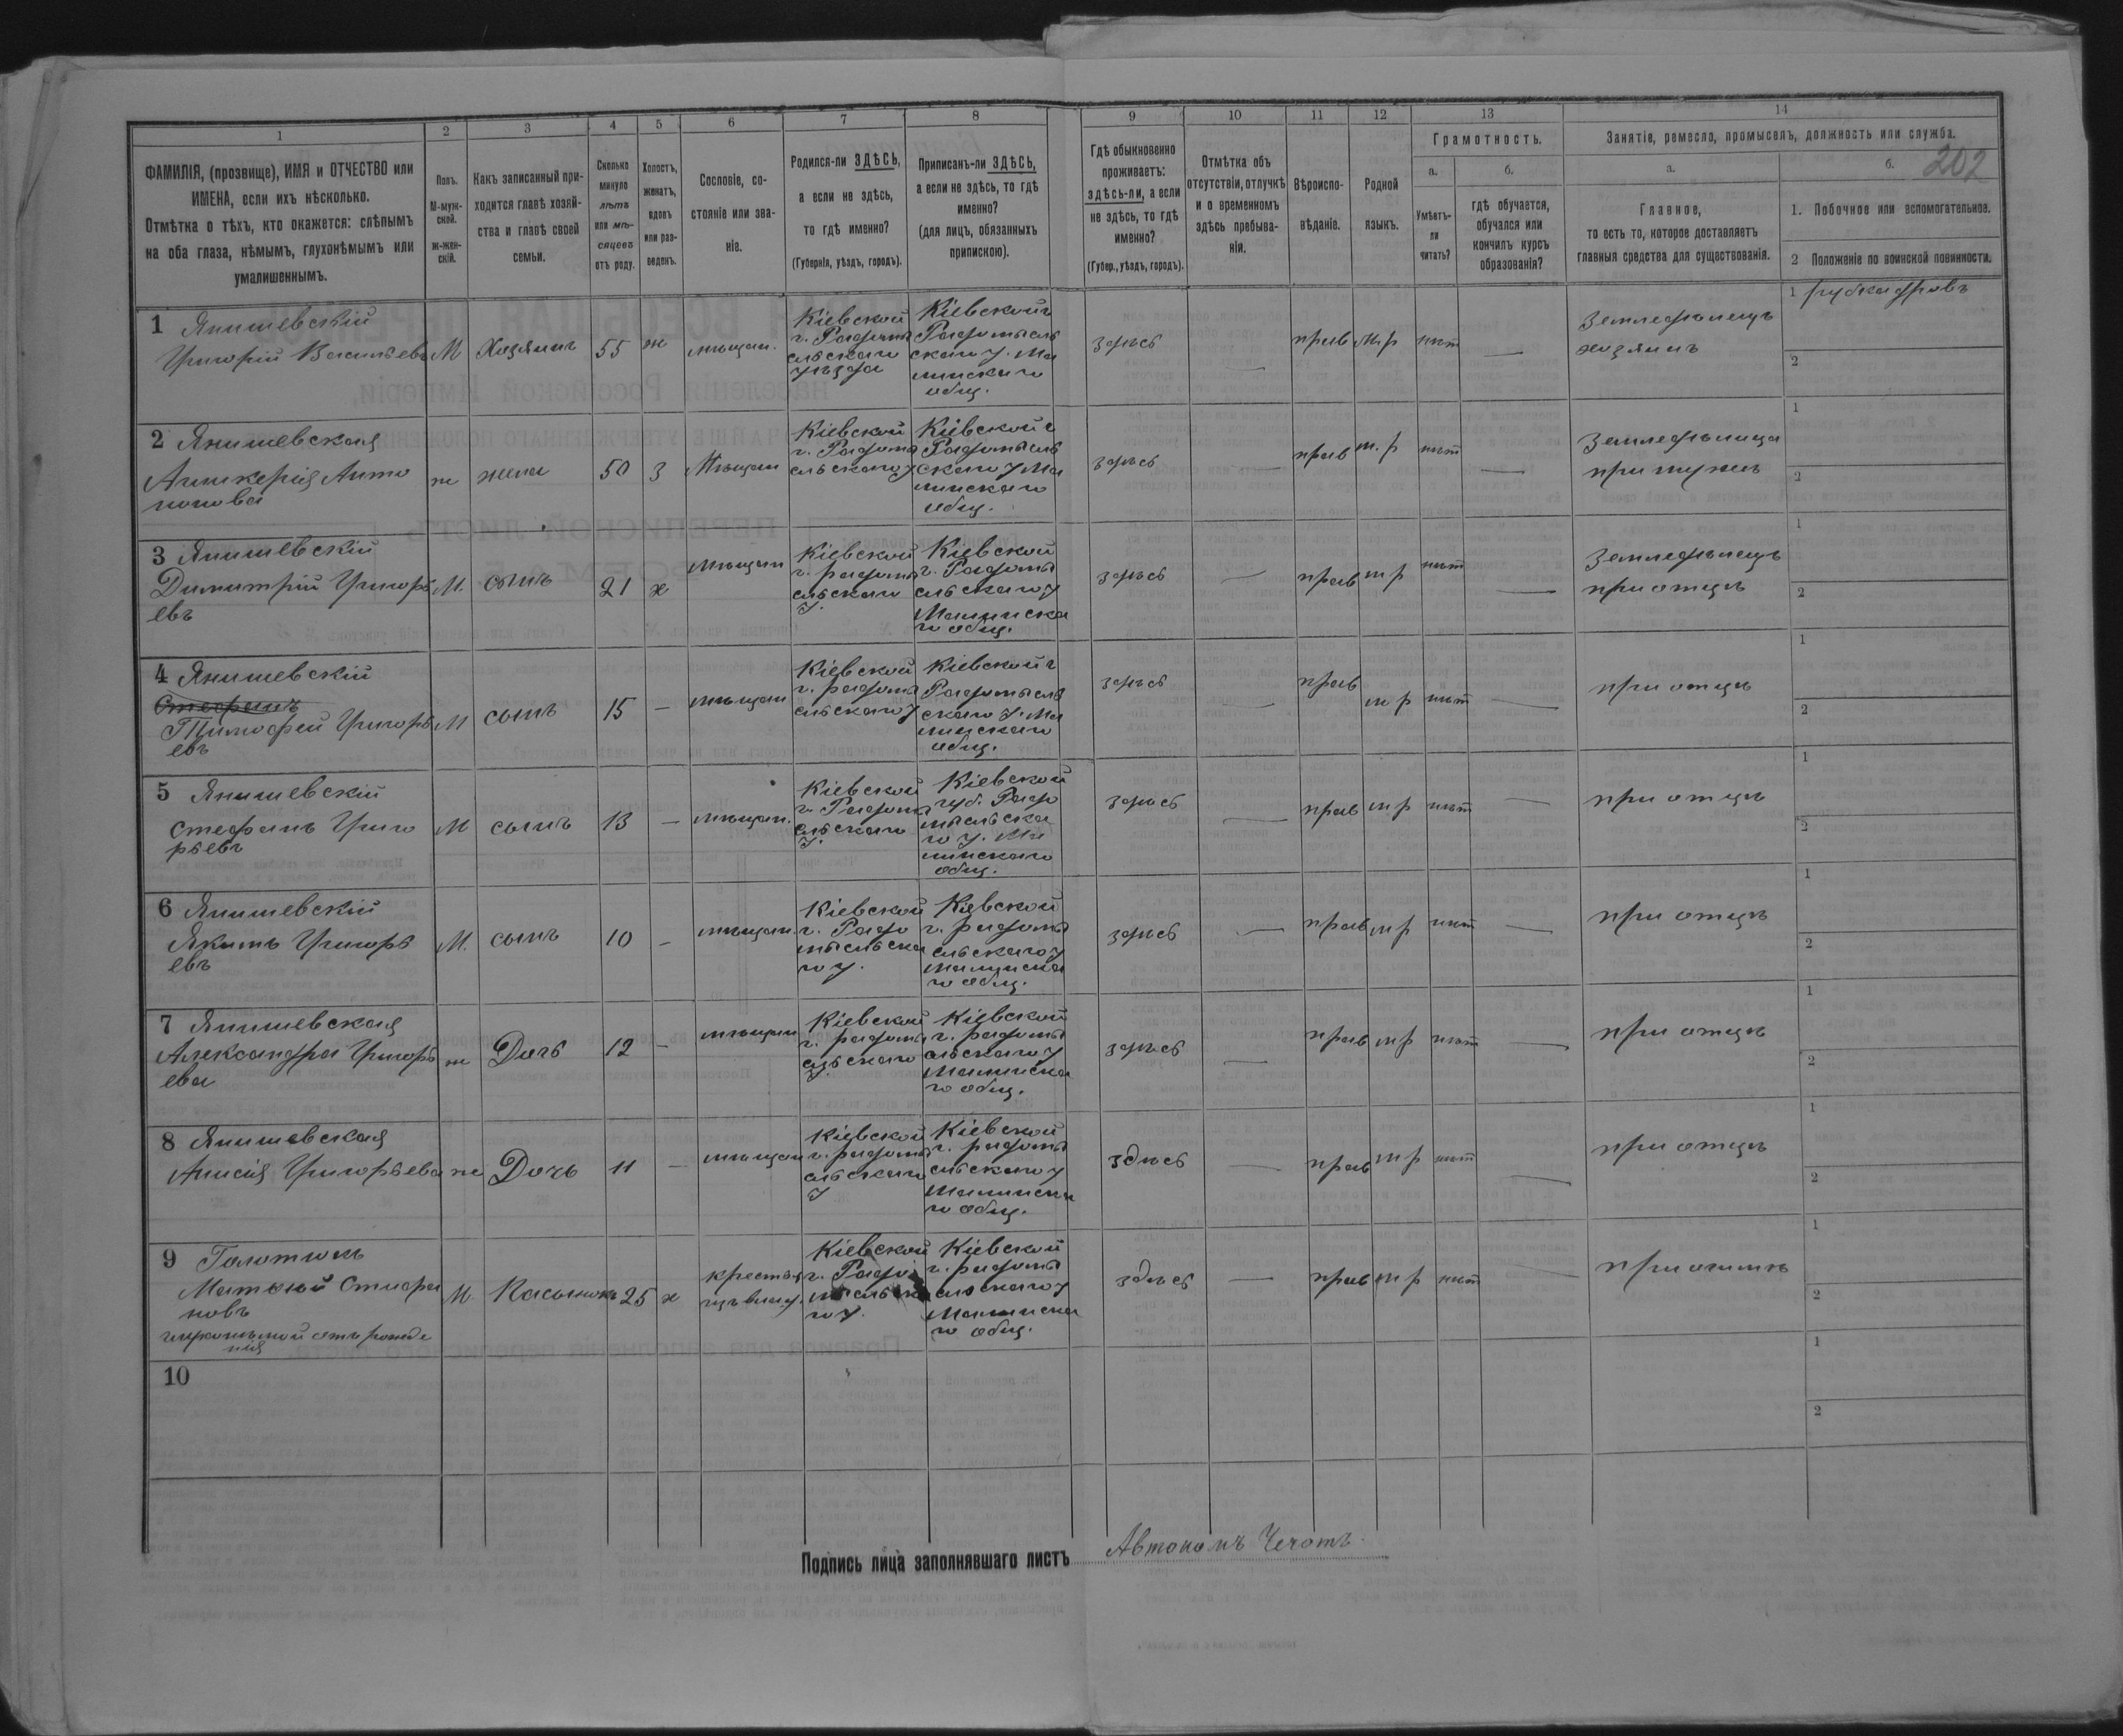 202
1
2
3
4
5
6
7
8
9
10
11
12
13
14
ФАМИЛІЯ, (прозвище), ИМЯ и ОТЧЕСТВО или
ИМЕНА, если ихъ нѣсколько.
Отмѣтка о тѣхъ, кто окажется: слѣпымъ
на оба глаза, нѣмымъ, глухонѣмымъ или
умалишеннымъ.
Полъ.
М-муж-
ской.
Ж-жен-
скій.
Какъ записанный при-
ходится главѣ хозяй-
ства и главѣ своей
семьи.
Сколько
минуло
лѣтъ
или мѣ-
сяцевъ
отъ роду.
Холостъ,
женатъ,
вдовъ
или раз-
веденъ.
Сословіе, со-
стояніе или зва-
ніе.
Родился-ли ЗДѢСЬ,
а если не здѣсь,
то гдѣ именно?
(Губернія, уѣздъ, городъ).
Приписанъ-ли ЗДѢСЬ,
а если не здѣсь, то гдѣ
именно?
(для лицъ, обязанныхъ
припискою).
Гдѣ обыкновенно
проживаетъ:
здѣсь-ли, а если
не здѣсь, то гдѣ
именно?
(Губер., уѣздъ, городъ).
Отмѣтка объ
отсутствіи, отлучкѣ
и о временномъ
здѣсь пребыва-
ніи.
Вѣроиспо-
вѣданіе.
Родной
языкъ.
Грамотность.
а.
Умѣетъ-
ли
читать?
б.
гдѣ обучается,
обучался или
кончилъ курсъ
образованія?
Занятіе, ремесло, промыселъ, должность или служба.
а.
Главное,
то есть то, которое доставляетъ
главныя средства для существованія.
б.
1. Побочное или вспомогательное.
2 Положеніе по воинской повинности.
1 Янишевскій
Григорій Васильевъ
М
Хозяинъ
55
ж
мѣщан.
Кіевской
г. Радомы
сльскаго
уѣзда
Кіевской г
Радомысль
скаго у. Ма
линскаго
общ.
здѣсь
—
прав
м р
нѣт
—
Земледѣлецъ
хозяинъ
1 рубка дровъ
2
2 Янишевская
Анто
нова
ж
жена
50
з
Мѣщан
Кіевской
г. Радомы
сльскаго у
Кіевской г
Радомысль
скаго у Ма
линскаго
общ.
здѣсь
—
прав
м. р
нѣт
—
Земледѣлица
при мужѣ
1
2
3 Янишевскій
Димитрій Григорь
евъ
М.
сынъ
21
х
мѣщан
Кіевской
г. радомы
сльскаго
у.
Кіевской
г. Радомы
сльскаго у
Малинска
го общ.
здѣсь
—
прав
м р
нѣт
—
Земледѣлецъ
при отцѣ
1
2
4 Янишевскій
Стефанъ
Тимофей Григорь
евъ
М
сынъ
15
—
мѣщан
Кіевской
г. радомы
сльскаго у
Кіевской г
Радомысль
скаго у. Ма
линскаго
общ.
здѣсь
—
прав
м р
нѣт
—
при отцѣ
1
2
5 Янишевскій
Стефанъ Григо
рьевъ
М
сынъ
13
—
мѣщан.
Кіевской
г. Радомы
сльскаго
у.
Кіевской
губ. Радо
мысльска
го у. Ма
линскаго
общ.
здѣсь
—
прав
м р
нѣт
—
при отцѣ
1
2
6 Янишевскій
Якимъ Григорь
евъ
М.
сынъ
10
—
мѣщан.
Кіевской
г. Радо
мысльска
го у.
Кіевской
г. радомы
сльскаго у
Малинска
го общ.
здѣсь
—
прав
м р
нѣт
—
при отцѣ
1
2
7 Янишевская
Александра Григорь
ева
ж
Дочь
12
—
мѣщан
Кіевской
г. радомы
сльскаго
у.
Кіевской
г. радомы
сльскаго у
Малинска
го общ.
здѣсь
—
прав
м р
нѣт
—
при отцѣ
1
2
8 Янишевская
Анисія Григорьева
ж
Дочь
11
—
мѣщан
Кіевской
г. радомы
сльскаго
у
Кіевской
г. радомы
сльскаго у
Малинска
го общ.
здѣсь
—
прав
м р
нѣт
—
при отцѣ
1
2
9
Стефа
новъ
глухонѣмой отъ рожде
нія
М.
25
х
Кіевской
г. Радо
мысльска
го у.
Кіевской
г. радомы
сльскаго у
Малинска
го общ.
здѣсь
—
прав
м р
нѣт
—
1
2
10
1
2
Подпись лица заполнявшаго листъ
Автономъ Чечотъ.